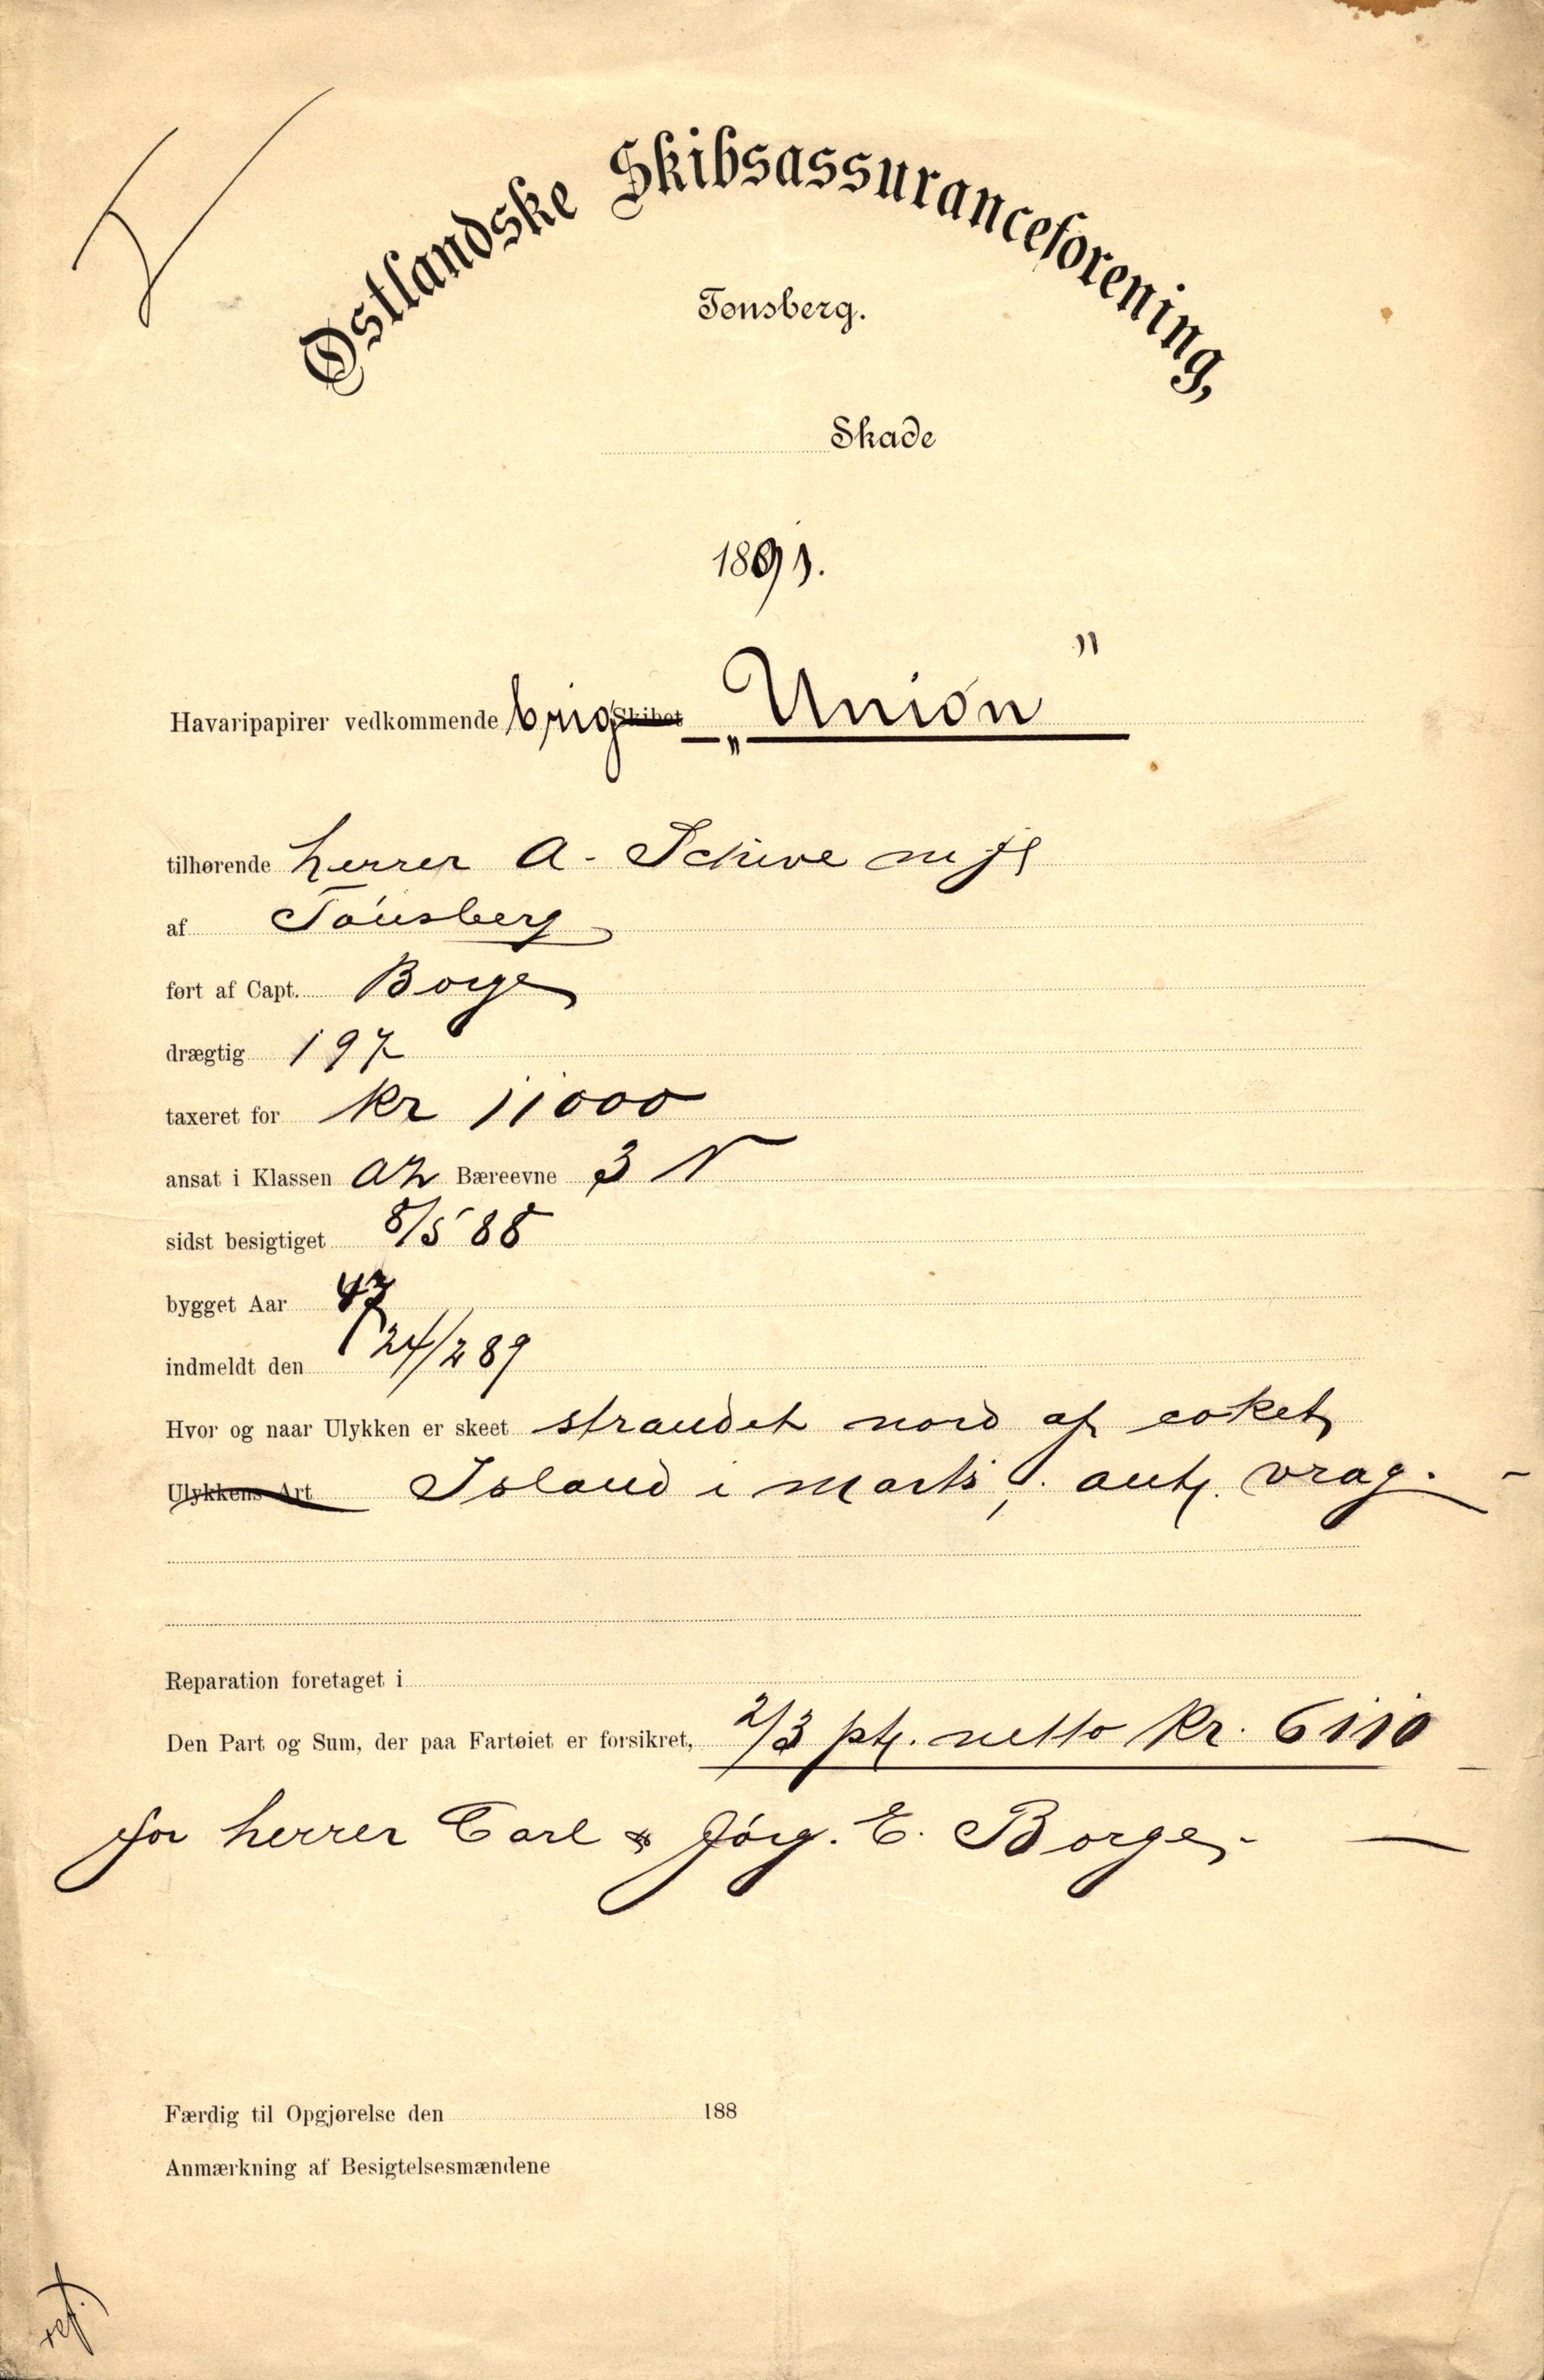 Østlandske Skibsassuranceforening,
Tønsberg.
Skade
1891.
Havaripapirer vedkommende brig Skibet „Union”
tilhørende herrer A. Schive m fl
af Tønsberg
ført af Capt. Borge
drægtig 197
taxeret for Kr 11000
ansat i Klassen A2 Bæreevne 3 N
sidst besigtiget 8/5 88
bygget Aar 47
indmeldt den 24/2 89
Hvor og naar Ulykken er skeet strandet nord af coket
Ulykkens Art Island i marts, antg. vrag.
Reparation foretaget i
Den Part og Sum, der paa Fartøiet er forsikret, 2/3 pt. netto Kr. 6110
for herrer Carl & Jørg. E. Borge. —
Færdig til Opgjørelse den 188
Anmærkning af Besigtelsesmændene